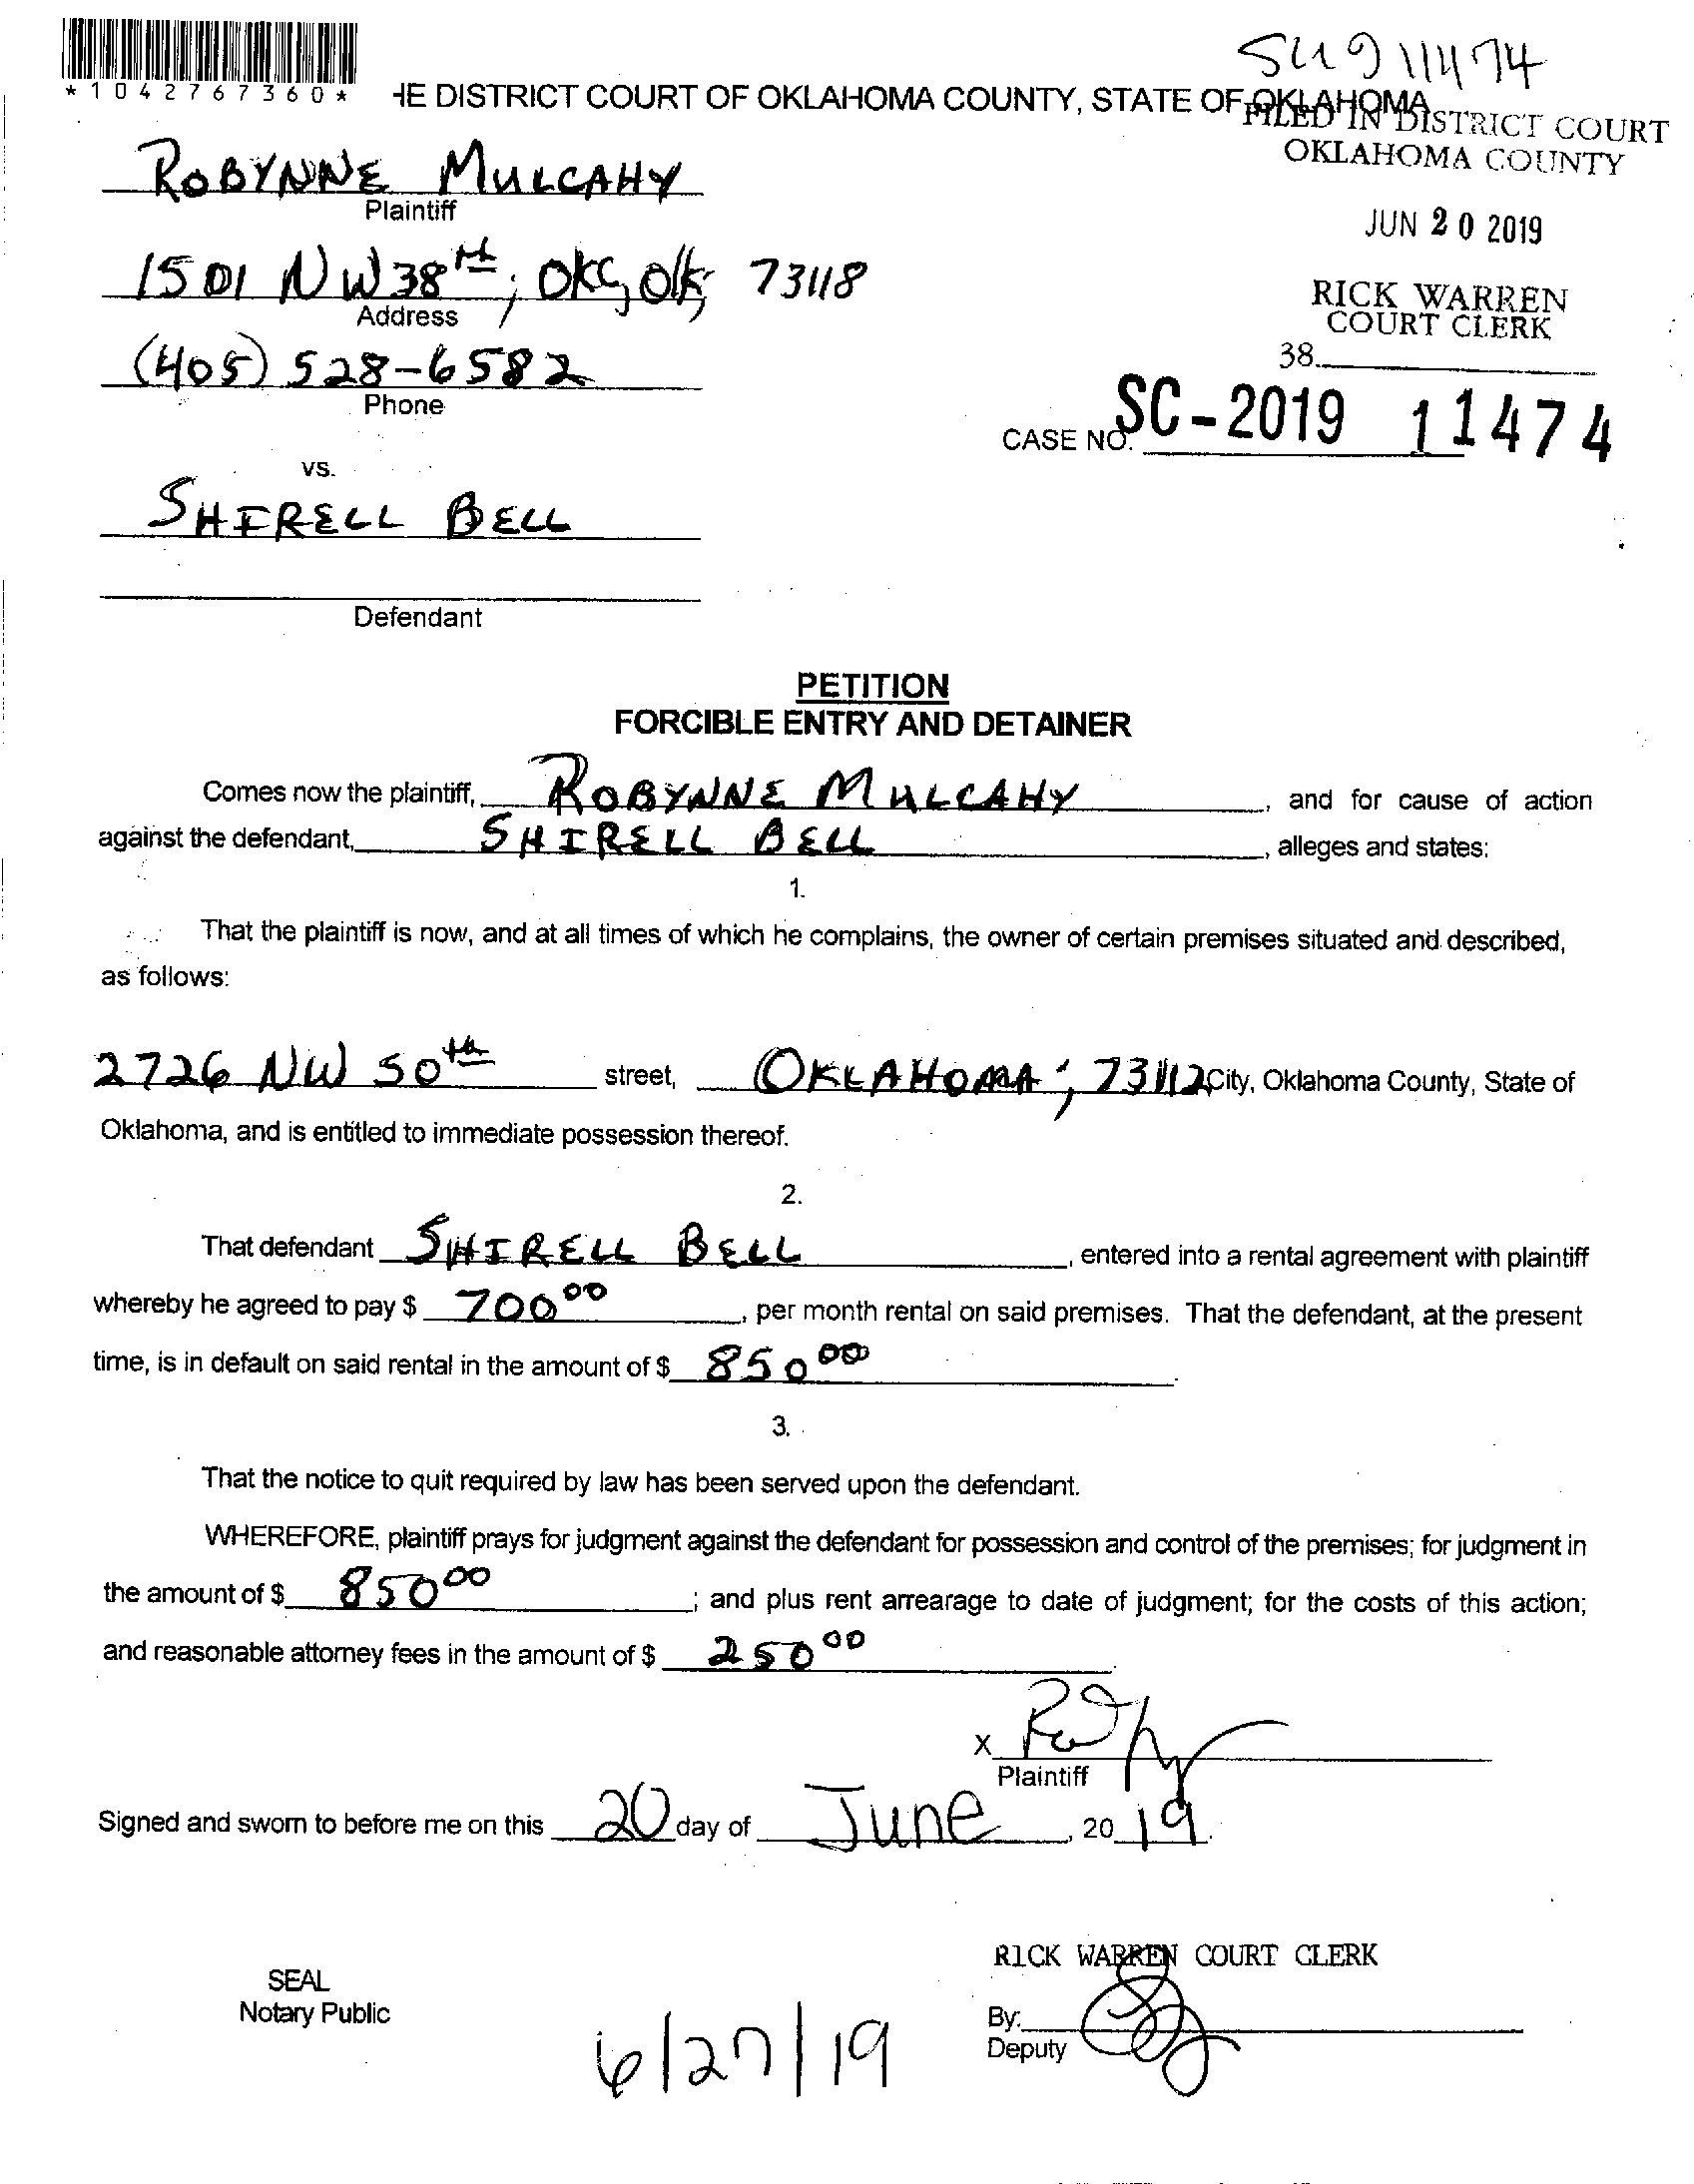 SC19 11474
*1042767360*
HE DISTRICT COURT OF OKLAHOMA COUNTY, STATE OF OKLAHOMA
FILED IN DISTRICT COURT
OKLAHOMA COUNTY
ROBYNNE MULCAHY
Plaintiff
JUN 20 2019
1501 NW 38th; OKC, Ok; 73118
Address
RICK WARREN
COURT CLERK
(405) 528-6582
38.
Phone
CASE NO. SC-2019 11474
vs.
SHIRELL BELL
Defendant
PETITION
FORCIBLE ENTRY AND DETAINER
Comes now the plaintiff, ROBYNNE MULCAHY, and for cause of action
against the defendant, SHIRELL BELL, alleges and states:
1.
That the plaintiff is now, and at all times of which he complains, the owner of certain premises situated and described,
as follows:
2726 NW 50th street, OKLAHOMA; 73112 City, Oklahoma County, State of
Oklahoma, and is entitled to immediate possession thereof.
2.
That defendant SHIRELL BELL, entered into a rental agreement with plaintiff
whereby he agreed to pay $ 700 00, per month rental on said premises. That the defendant, at the present
time, is in default on said rental in the amount of $ 850 00.
3.
That the notice to quit required by law has been served upon the defendant.
WHEREFORE, plaintiff prays for judgment against the defendant for possession and control of the premises; for judgment in
the amount of $ 850 00; and plus rent arrearage to date of judgment; for the costs of this action;
and reasonable attorney fees in the amount of $ 250 00
X
Plaintiff
Signed and sworn to before me on this 20 day of June, 20 19.
RICK WARREN COURT CLERK
SEAL
Notary Public
By:
Deputy
6/27/19